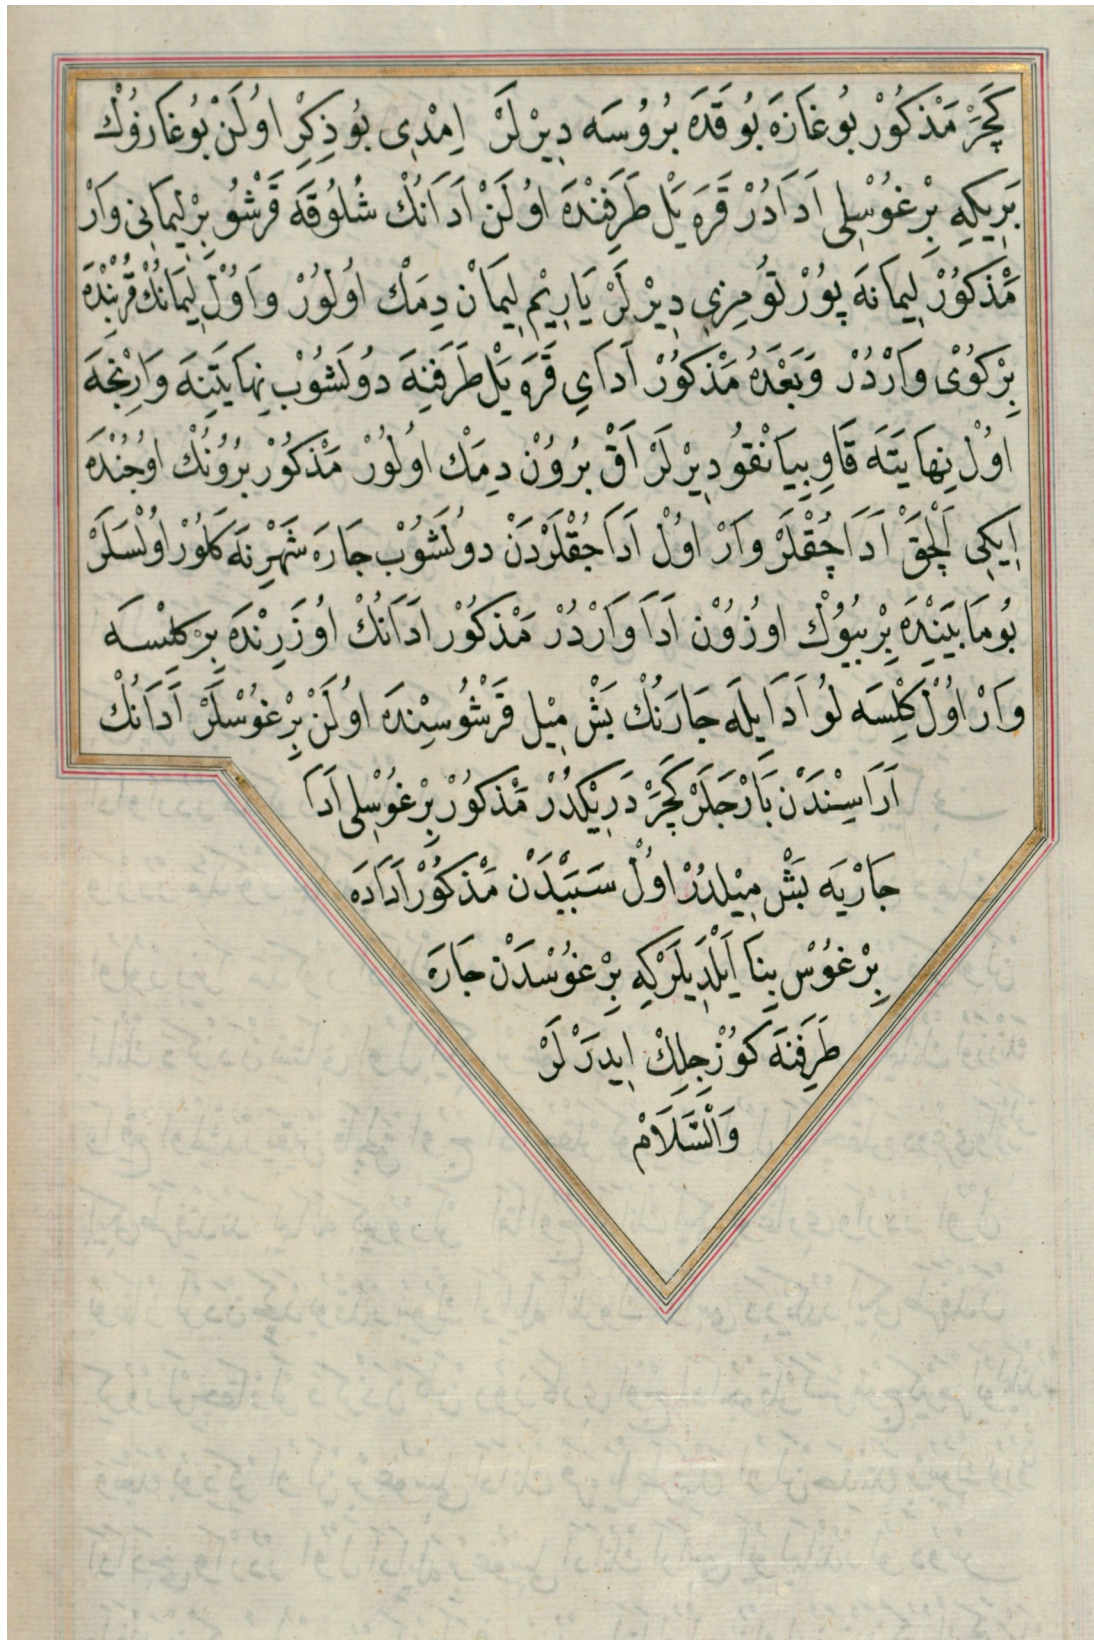 كَچَرْ مَذْكُورْ بُوغَازَه بُوقَدَه بُرُوسَه دِيرْلَرْ اِمْدِى بُو ذِكْرِ اوُلَنْ بُوغَازوُكْ
بَرِيكِه بِرْغُوسْلِى اَدَادُرْ قَرَه يَلْ طَرَفِنْدَه اوُلَنْ اَدَانُكْ شُلُوقَه قَرْشُو بِرْ لِيمَانِى وَارْ
مَذْكُورْ لِيمَانَه پُورْتُو مِزِى دِيرْلَرْ يَارِيمْ لِيمَانْ دِمَكْ اُولُورْ وَاُولْ لِيمَانُكْ قُرْبِنْدَه
بِرْ كُوىْ وَارْدُرْ وَبَعْدَهُ مَذْكُورْ اَدَاىِ قَرَه يَلْ طَرَفِنَه دُولَشُوبْ نِهَايَتِنَه وَارِنْجَه
اُولْ نِهَايَتَه قَاوِ بِيَانْقُو دِيرْلَرْ اَقْ بُرُونْ دِمَكْ اُولُورْ مَذْكُورْ بُرُونُكْ اُوجُنْدَه
اِيكِى اَلْچَقْ اَدَاجُقْلَرْ وَارْ اُولْ اَدَاجُقْلَرْدَنْ دُولَشُوبْ جَارَه شَهْرِنَه كَلُورْ اُولْسَلَرْ
بُو مَابَيْنِنْدَه بِرْ بُيُوكْ اوُزُونْ اَدَا وَارْدُرْ مَذْكُورْ اَدَانُكْ اُوزَرِنْدَه بِرْ كَلِسَه
وَارْ اُولْ كَلِسَه لُو اَدَا يِلَه جَارَنُكْ بَشْ مِيلْ قَرْشُوسِنْدَه اوُلَنْ بِرْغُوسْلَرْ اَدَانُكْ
اَرَاسِنْدَنْ بَارْجَلَرْ كَچَرْ دَرِيكْدُرْ مَذْكُورْ بِرْغُوسْلِى اَدَا
جَارَيَه بَشْ مِيلْدُرْ اُولْ سَبَبْدَنْ مَذْكُورْ اَدَادَه
بِرْغُوسْ بِنَا اَيْلَدِيلَرْكِه بِرْغُوسْدَنْ جَارَه
طَرَفِنَه كُوزْجِلِكْ اِيدَرْلَرْ
وَالسَّلَامْ